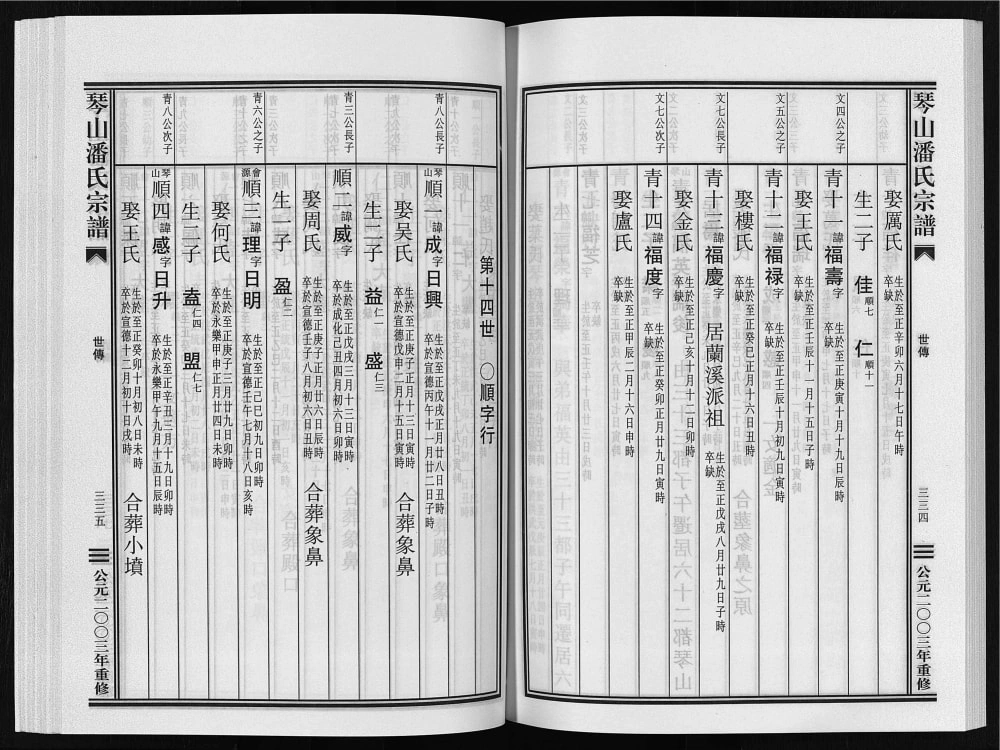 琴山潘氏宗譜
世傳
三三四
公元二〇〇三年重修
娶厲氏 生於至正辛卯六月十七日午時 卒缺
生二子 佳順七 仁順十一
文四公之子
青十一諱福壽字 生於至正庚寅十月十九日辰時 卒缺
娶王氏 生於至正壬辰十一月十五日子時 卒缺
文五公之子
青十二諱福祿字 生於至正壬辰十月初九日寅時 卒缺
娶樓氏 生於至正癸巳正月十六日丑時 卒缺
文七公長子
青十三諱福慶字 居蘭溪派祖 生於至正戊戌八月廿九日子時 卒缺
娶金氏 生於至正己亥十月十二日卯時 卒缺
文七公次子
青十四諱福度字 生於至正癸卯正月廿九日寅時 卒缺
娶盧氏 生於至正甲辰二月十六日申時 卒缺
第十四世 〇順字行
青八公長子
琴山順一諱成字日興 生於至正戊戌正月廿八日丑時 卒於宣德丙午十一月廿二日子時
娶吳氏 生於至正庚子正月十三日寅時 卒於宣德戊申二月十五日寅時 合葬象鼻
生二子 益仁一 盛仁三
青三公長子
順二諱威字 生於至正戊戌三月十三日寅時 卒於成化己丑四月初六日卯時
娶周氏 生於至正庚子正月廿六日辰時 卒於宣德壬子八月初六日丑時 合葬象鼻
生一子 盈仁二
青六公之子
會源順三諱理字日明 生於至正己巳初九日卯時 卒於宣德壬午七月十八日亥時
娶何氏 生於至正庚子三月廿九日卯時 卒於永樂甲申正月廿四日未時
生二子 盍仁四 盟仁七
青八公次子
琴山順四諱感字日升 生於至正辛丑三月十九日卯時 卒於永樂甲午九月十五日辰時
娶王氏 生於至正癸卯十月初八日未時 卒於宣德十二月初十日戌時 合葬小墳
琴山潘氏宗譜
世傳
三三五
公元二〇〇三年重修